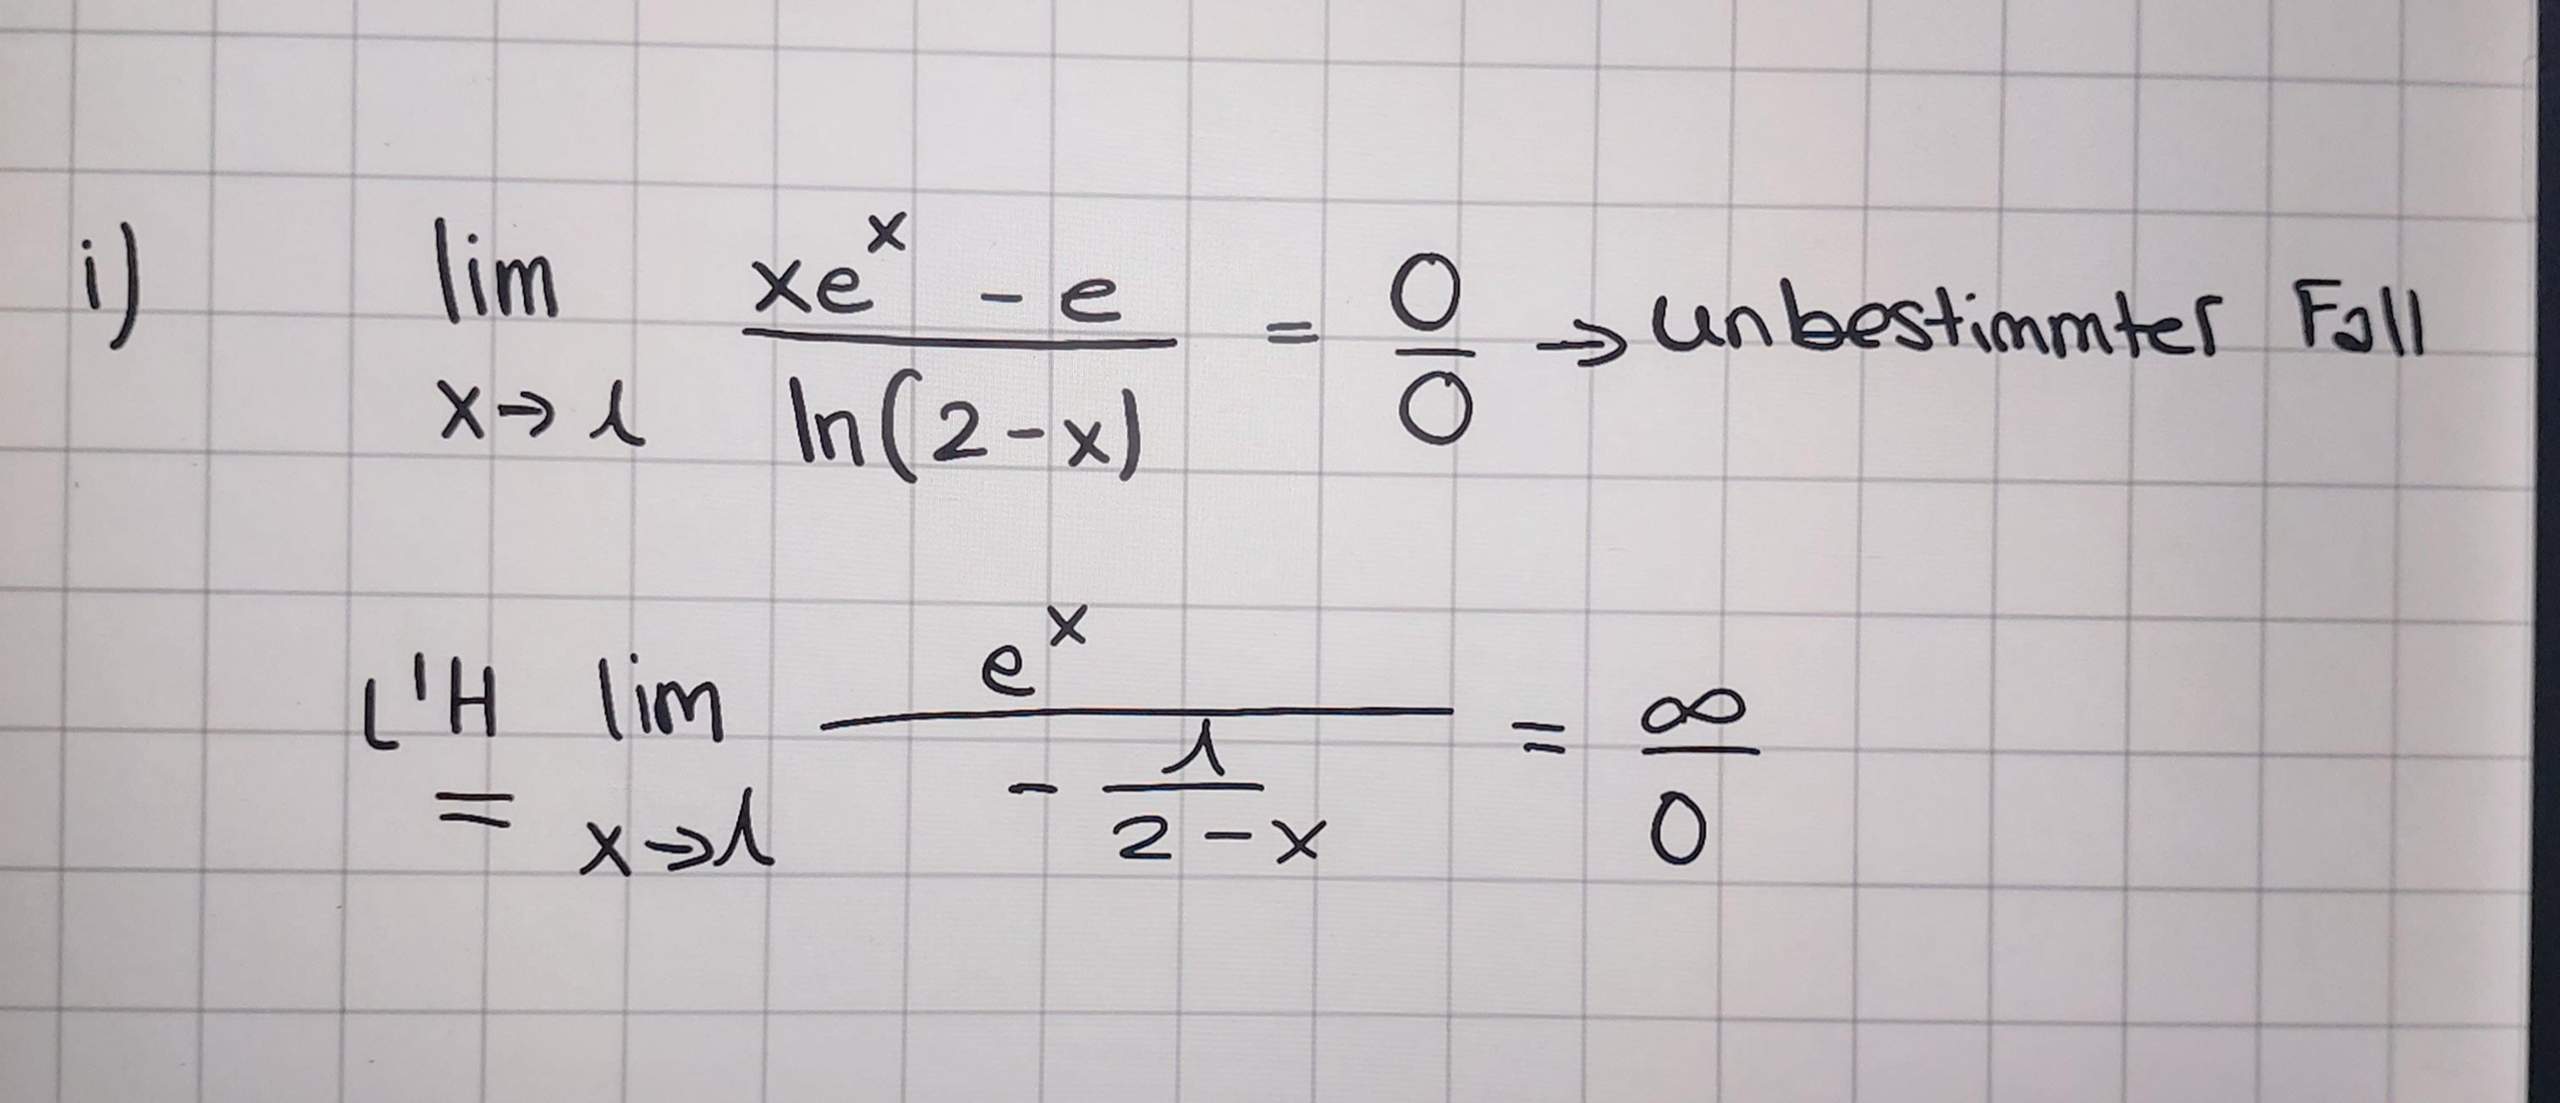 i) lim x→1 (xe^x - e)/(ln(2-x)) = 0/0 → unbestimmter Fall
L'H = lim x→1 e^x/(- 1/(2-x)) = ∞/0